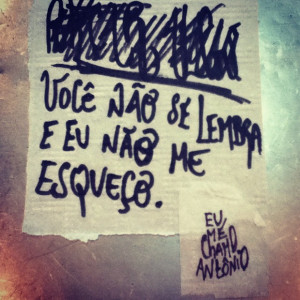 VOCÊ NÃO SE LEMBRA
E EU NÃO ME
ESQUEÇO.
EU
ME
CHAMO
ANTÔNIO